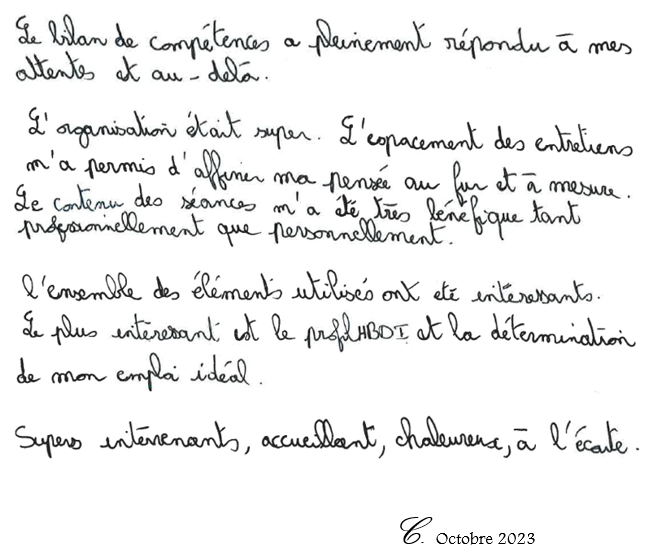 Le bilan de compétences a pleinement répondu à mes
attentes et au-delà.
L'organisation était super. L'espacement des entretiens
m'a permis d'affiner ma pensée au fur et à mesure.
Le contenu des séances m'a été très bénéfique tant
professionnellement que personnellement.
L'ensemble des éléments utilisés ont été intéressants.
Le plus intéressant est le profil HBDI et la détermination
de mon emploi idéal.
Supers intervenants, accueillant, chaleureux, à l'écoute.
C. Octobre 2023